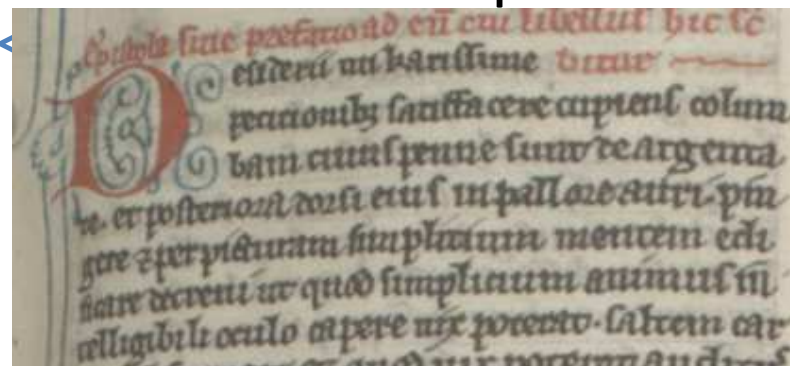 Ep̄istola siue prefatio ad eū cui libellus hic sc̄
Desiderii tui karissime bitur
petitionibꝫ satisfacere cupiens colum
bam cuius penne sunt de argenta
te. et posteriora dorsi eius in pallore auri. pin
gere ⁊ per picturam simplicium mentem edi
ficare decreui ut quod simplicium animus in̄
telligibili oculo capere uix poterat. saltem car